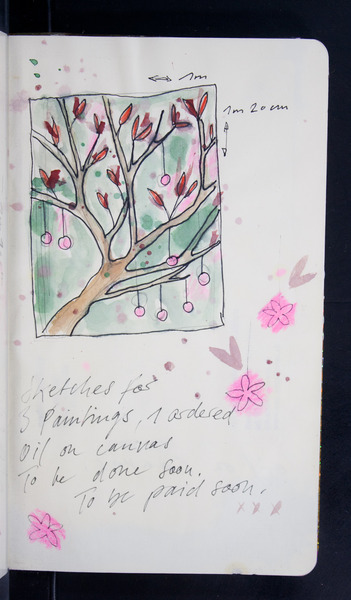 1m
1m 20cm
Sketches for
3 Paintings, 1 ordered
Oil on canvas
To be done soon.
To be paid soon.
xxx